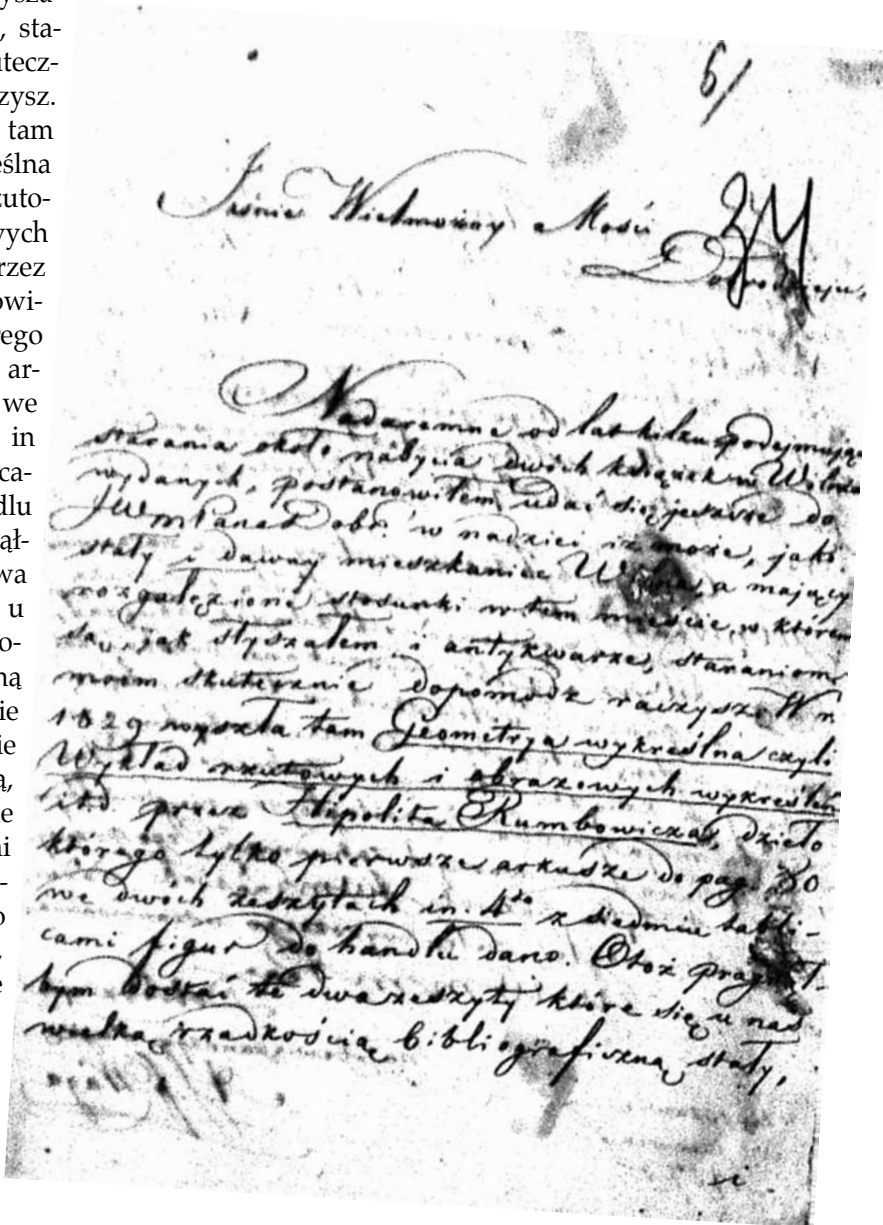 ysza
, sta-
utecz-
zysz.
tam
eślna
zuto-
wych
rzez
owi-
rego
ar-
we
in
ca-
dlu
ął-
wa
u
o-
ną
ie
ie
ą,
e
ni
-
o
,
e
6/
Jaśnie Wielmożny Mości
Dobrodzieju,
Nadaremne od lat kilku podejmując
starania około nabycia dwóch książek w Wilnie
wydanych, postanowiłem udać się jeszcze do
JWmPana Dobr. w nadziei iż może, jako
stały i dawny mieszkaniec Wilna, a mający
rozgałęzione stosunki w tem mieście, w którem
są, jak słyszałem, i antykwarze, staraniom
moim skutecznie dopomódz raczysz. W r.
1829 wyszła tam Geometrya wykreślna czyli
Wykład rzutowych i obrazowych wykreśleń
itd przez Hipolita Rumbowicza, dzieło
którego tylko pierwsze arkusze do pag. 80
we dwóch zeszytach in 4to z siedmiu tabli-
cami figur do handlu dano. Otóż pragnął-
bym dostać te dwa zeszyty które się u nas
wielką rzadkością bibliograficzną stały,
i